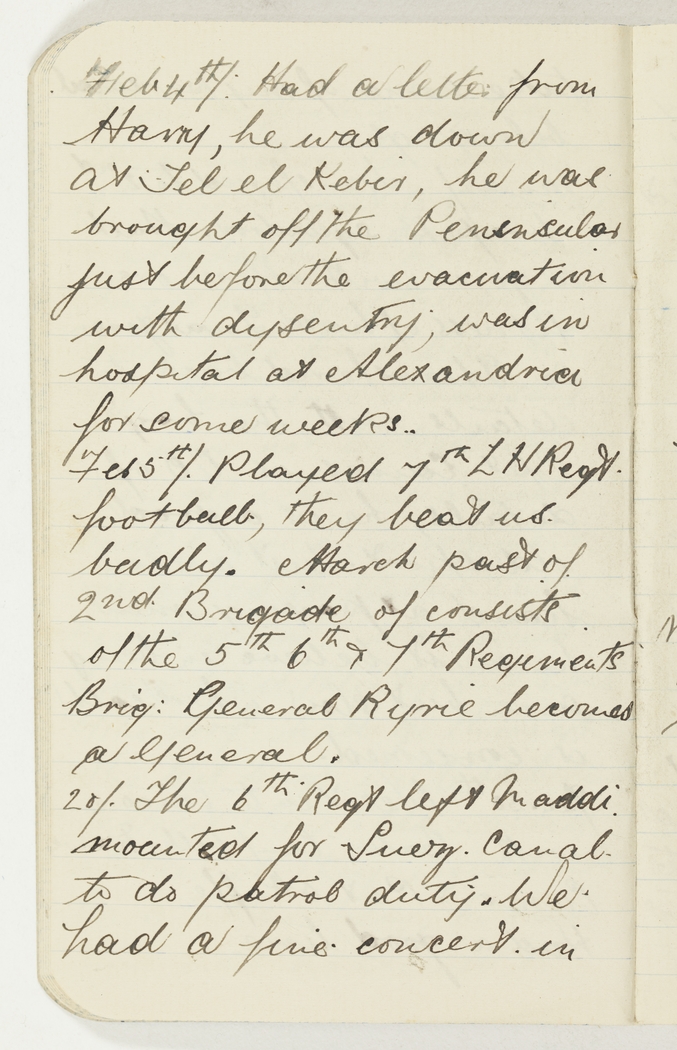 Feb 4th/. Had a letter from
Harry, he was down
at Tel el Kebir, he was
brought off the Peninsular
just before the evacuation
with dysentry, was in
hospital at Alexandria
for some weeks..
Feb 5th/. Played 7th L H Regt.
football, they beat us
badly. March past of
2nd Brigade of consists
of the 5th 6th & 7th Regiments
Brig: General Ryrie becomes
a General.
20/. The 6th Regt left Maddi
mounted for Suez. Canal
to do patrol duty. We
had a fine concert. in